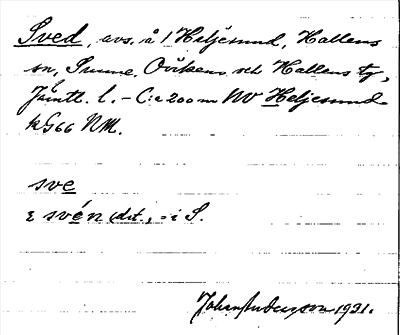 Sved, avs. å 1 Heljesund, Hallens
sn, Sunne, Ovikens och Hallens tg,
Jämtl. l. – C:a 200 m NV Heljesund
kG66 NM.
sve
svén (dat., = i S.
Johan Anderson 1931.